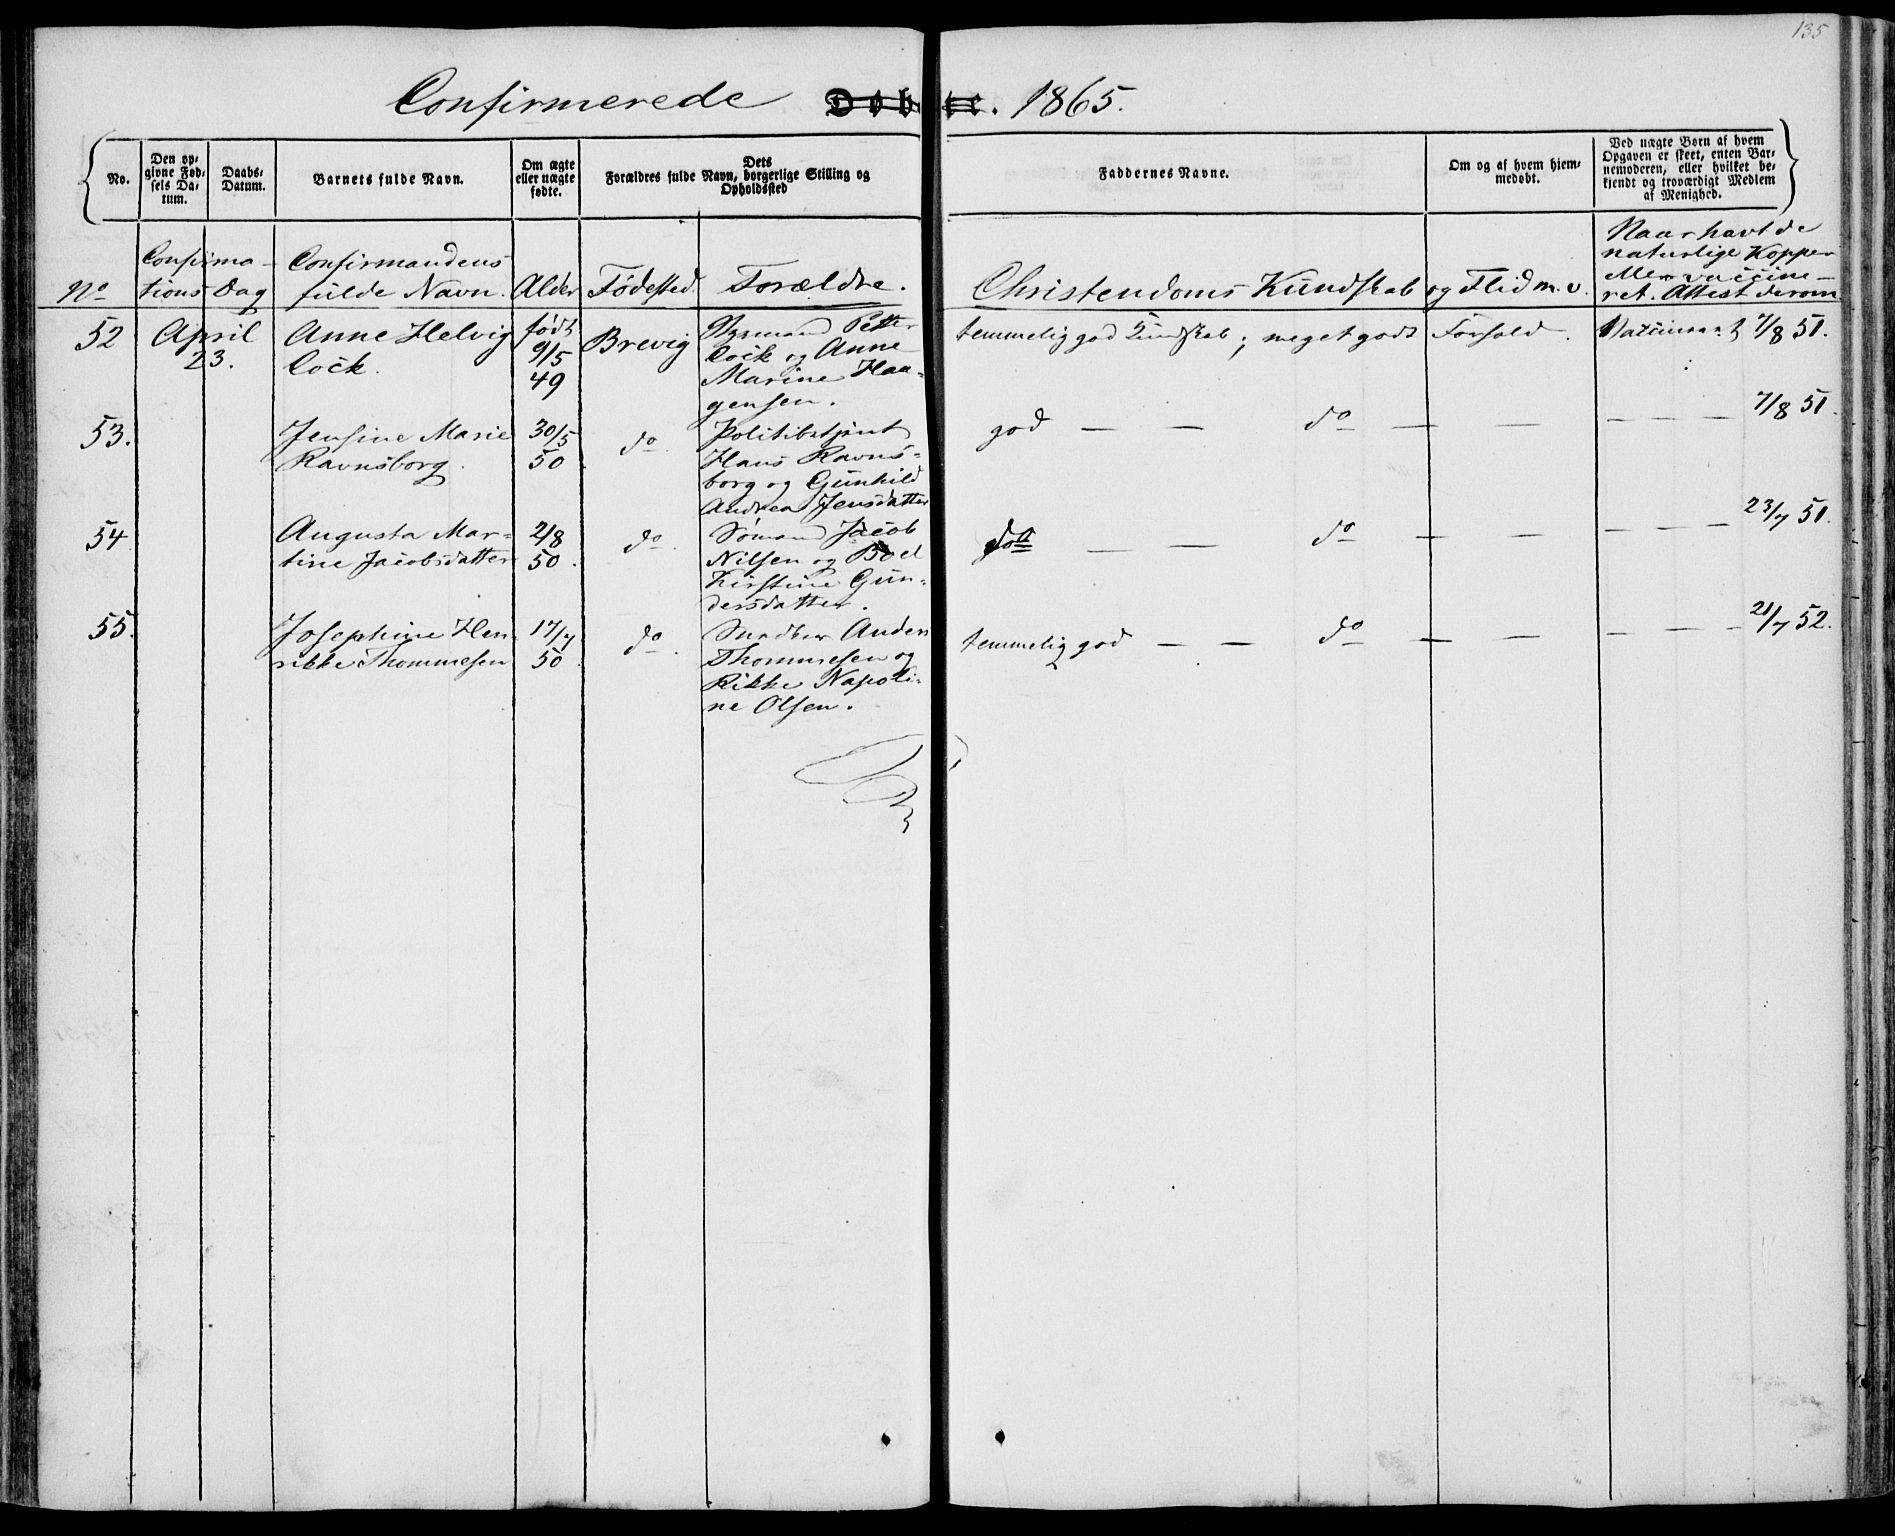 135
Confirmerede Døbte. 1865.
No.
Den op-
givne Fød-
sels Da-
tum.
Daabs-
Datum.
Barnets fulde Navn.
Om ægte
eller uægte
fødte.
Dets
Forældres fulde Navn, borgerlige Stilling og
Opholdssted
Faddernes Navne.
Om og af hvem hjem-
medøbt.
Ved uægte Børn af hvem
Opgaven er skeet, enten Bar-
nemoderen, eller hvilket be-
kjendt og troværdigt Medlem
af Menighed.
No
Confirma-
tions Dag
Confirmandens
fulde Navn.
Alder
Fødested
Forældre.
Christendoms Kundskab og Flid m. v.
Naar havt de
naturlige Kopper
eller vaccine-
ret. Attest derom
52
April
23.
Anne Helvig
Cock.
født
9/5
49
Brevig
Petter
Cock og Anne
Marine Haa-
gensen.
temmelig god Kundskab; meget godt Forhold.
Vaccinert 7/8 51.
53.
Jensine Marie
Ravnsborg.
30/5
50.
do.
Politibetjent
Hans Ravns-
borg og Gunhild
Andrea Jensdatter
god — — do — —
— — — 7/8 51.
54
Augusta Mar-
tine Jacobsdatter
2/8
50.
do.
Sømand Jacob
Nilsen og Boel
Kirstine Gun-
dersdatter.
do — — do — —
— — — 23/7 51.
55.
Josephine Hen-
rikke Thommesen
17/7
50.
do.
Smedber Anders
Thommesen og
Rikke Napoli-
ne Olsen.
temmelig god — — do — —
— — — 21/7 52.